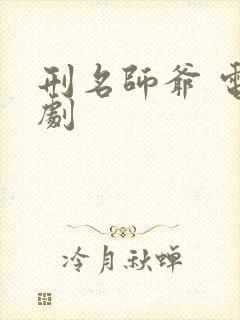 刑名師爺 電
劇
冷月秋蝉